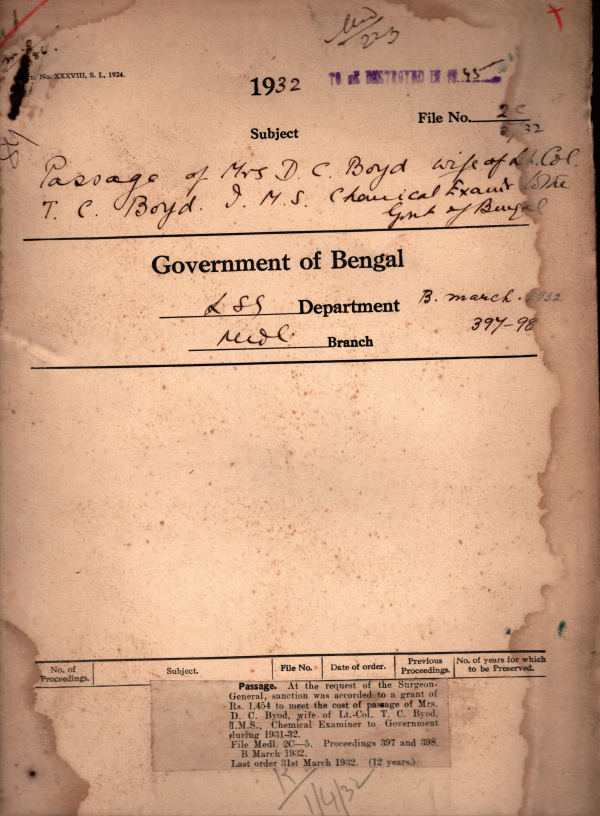 No. XXXVIII, S. I., 1924.
1932
TO BE DESTROYED IN 19 45
File No. 2C
5/32
Subject
Passage of Mrs D. C. Boyd wife of Lt. Col.
T. C. Boyd. I. M. S. Chemical Examr to the
Govt of Bengal
Government of Bengal
LSG Department
B. March. 1932
397-98
Medl. Branch
No. of Proceedings.
Subject.
File No.
Date of order.
Previous Proceedings.
No. of years for which to be Preserved.
Passage. At the request of the Surgeon-
General, sanction was accorded to a grant of
Rs. 1,454 to meet the cost of passage of Mrs.
D. C. Byod, wife of Lt.-Col. T. C. Byod,
I.M.S., Chemical Examiner to Government
during 1931-32.
File Medl. 2C—5. Proceedings 397 and 398.
B March 1932.
Last order 31st March 1932. (12 years.)
1/4/32